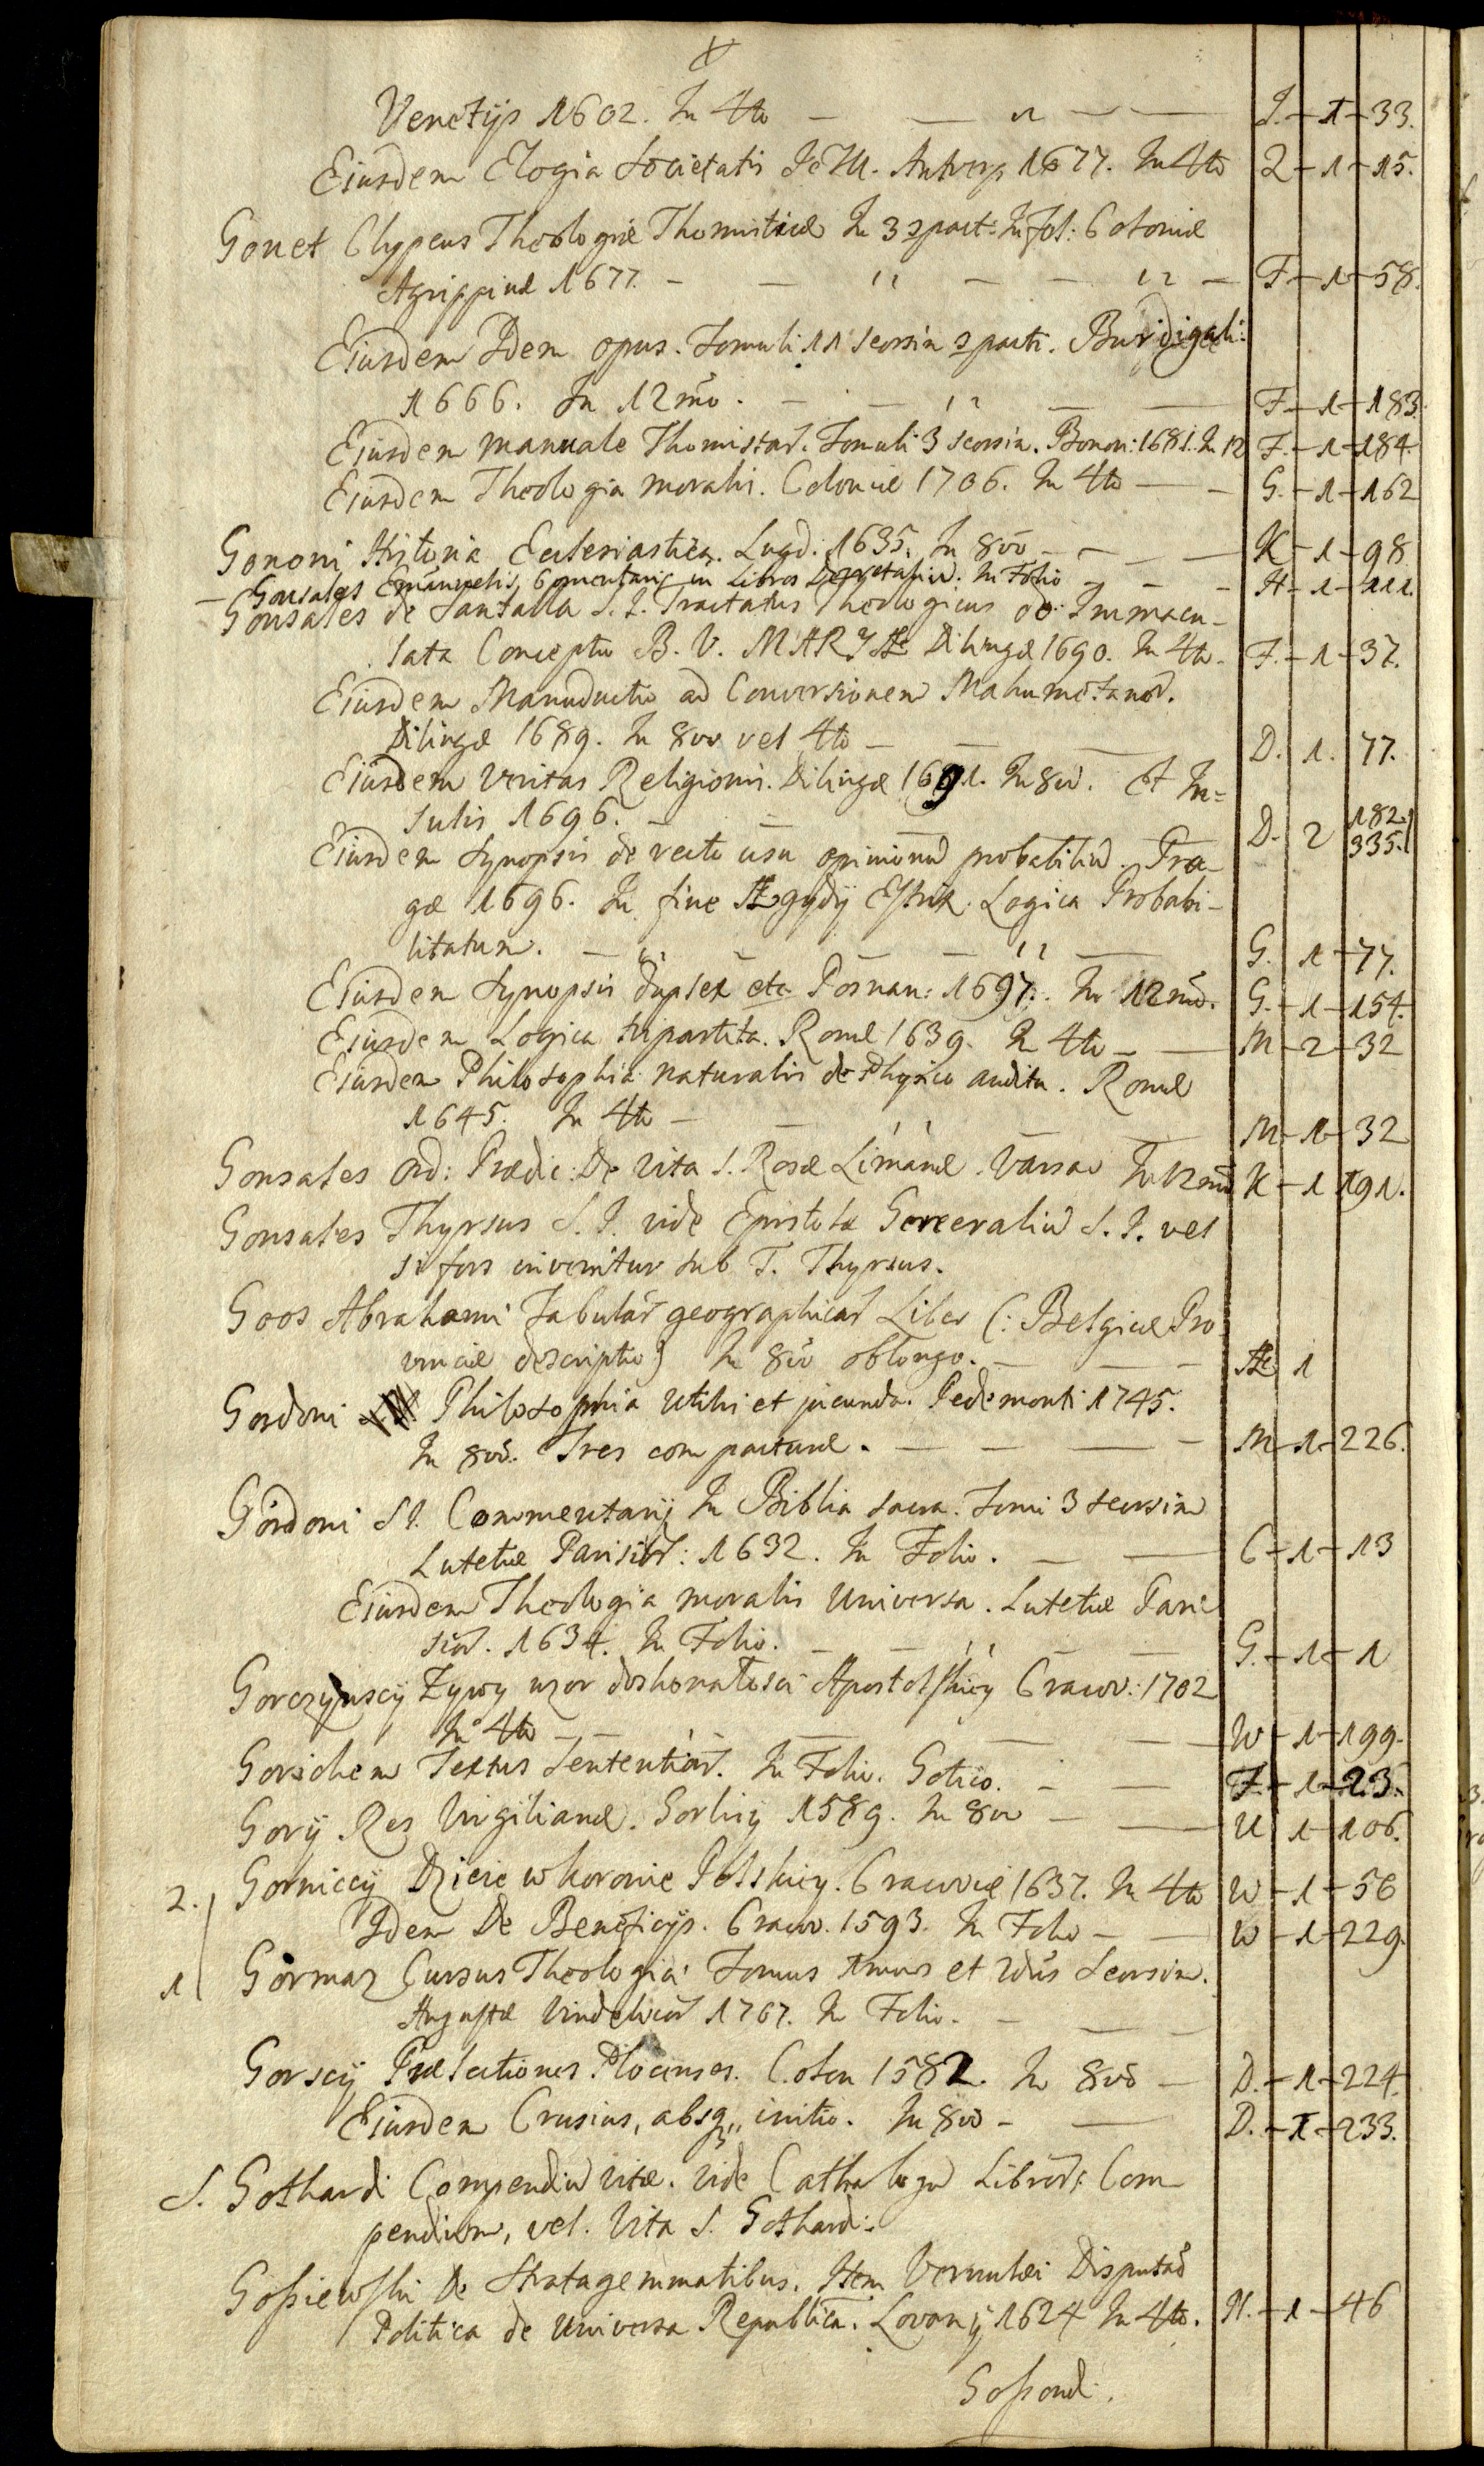 Venetijs 1602. In 4to — — " — — J. - 1 - 33.
Eiusdem Elogia Societatis JeSU. Antverp 1677. In 4to Q - 1 - 15.
Gonet Clypeus Theologiæ Thomisticæ In 3 part: In fol: Coloniæ
Agrippinæ 1677. — — " — — " — F - 1 - 58.
Eiusdem Idem opus. Tomuli 11 seorsim part. Burdigali:
1666. In 12mo. — — " — — F - 1 - 183.
Eiusdem manuale Thomistar. Tomuli 3 seorsim. Bonon: 1681. In 12 F. - 1 - 184.
Eiusdem Theologia moralis. Coloniæ 1706. In 4to — - G. - 1 - 162
Gononi Historia Ecclesiastica. Lugd: 1635. In 8vo - — — K - 1 - 98
— Gonsales Emanuelis, Comentarij in Libros Decretaliũ. In Folio - - - H - 1 - 111.
Gonsales de Santalla S. J. Tractatus Theologicus de Immacu-
lata Conceptio B. V. MARIÆ Dilingæ 1690. In 4to. F. - 1 - 37.
Eiusdem Manuductio ad Conversionem Mahumetanor.
Dilingæ 1689. In 8vo vel 4to — — — D. 1. 77.
Eiusdem Veritas Religionis. Dilingæ 1691. In 8vo. Et In=
sulis 1696. — — — — D. 2 182. 335.
Eiusdem Synopsis de recto usu opinionũ probabiliũ. Pra-
gæ 1696. In fine Ægydij Estrix Logica Probabi-
litatum. — " — — " — G. 1 - 77.
Eiusdem Synopsis duplex etc Posnan: 1697. In 12mo. G. - 1 - 154.
Eiusdem Logica tripartita. Romæ 1639. In 4to - — M - 2 - 32
Eiusdem Philosophia naturalis de Physico auditu. Romæ
1645. In 4to — — " — — M - 1 - 32
Gonsales Ord: Prædic: De Vita S. Rosæ Limanæ. Varsav In 12mo K - 1 191.
Gonsales Thyrsus S. J. vide Epistolæ Generaliũ S. J. vel
si fors invenitur sub T. Thyrsus.
Goos Abrahami Tabular geographicar Liber (: Belgicæ Pro-
vinciæ descriptio) In 8vo oblongo. — — - Æ 1
Gordoni Philosophia utilis et jucunda. Pedemonti 1745.
In 8vo. Tres compacturæ. — — — - M - 1 - 226.
Gordoni S J. Commentarij In Biblia sacra. Tomi 3 seorsim
Lutetiæ Parisior: 1632. In Folio. — — C - 1 - 13
Eiusdem Theologia moralis Universa. Lutetiæ Pari-
sior. 1634. In Folio. — — " — — G. - 1 - 1
Gorczynscij Zywy wzor doskonałosci Apostolskiey Cracov: 1702
In 4to — — " — — — W - 1 - 199.
Gorichem Textus Sententiar. In Folio. Gotico. - — F. - 1 - 23.
Gorij Res Virgilianæ. Gorlicij 1589. In 8vo — — U 1 - 106.
2. Gorniccij Dzieie w koronie Polskiey. Cracoviæ 1637. In 4to W - 1 - 56
Idem De Beneficijs. Cracov. 1593. In Folio - — W - 1 - 229.
1 Gormaz Cursus Theologia: Tomus 1mus et 2dus seorsim.
Augustæ Vindelicor 1767. In Folio. — — —
Gorscij Prælectiones Plocenses. Colon 1582. In 8vo — D. - 1 - 224.
Eiusdem Crusius, absq, initio. In 8vo - — D. - 1 - 233.
S. Gothardi Compendiũ Vitæ. Vide Cathalogũ Libror: Com
pendium, vel. Vita S. Gothardi.
Gosiewski De Stratagemmatibus. Item Vernulæi Disputao
Politica de Universa Republica. Lovanij 1624 In 4to. N. - 1 - 46
Gossondi.